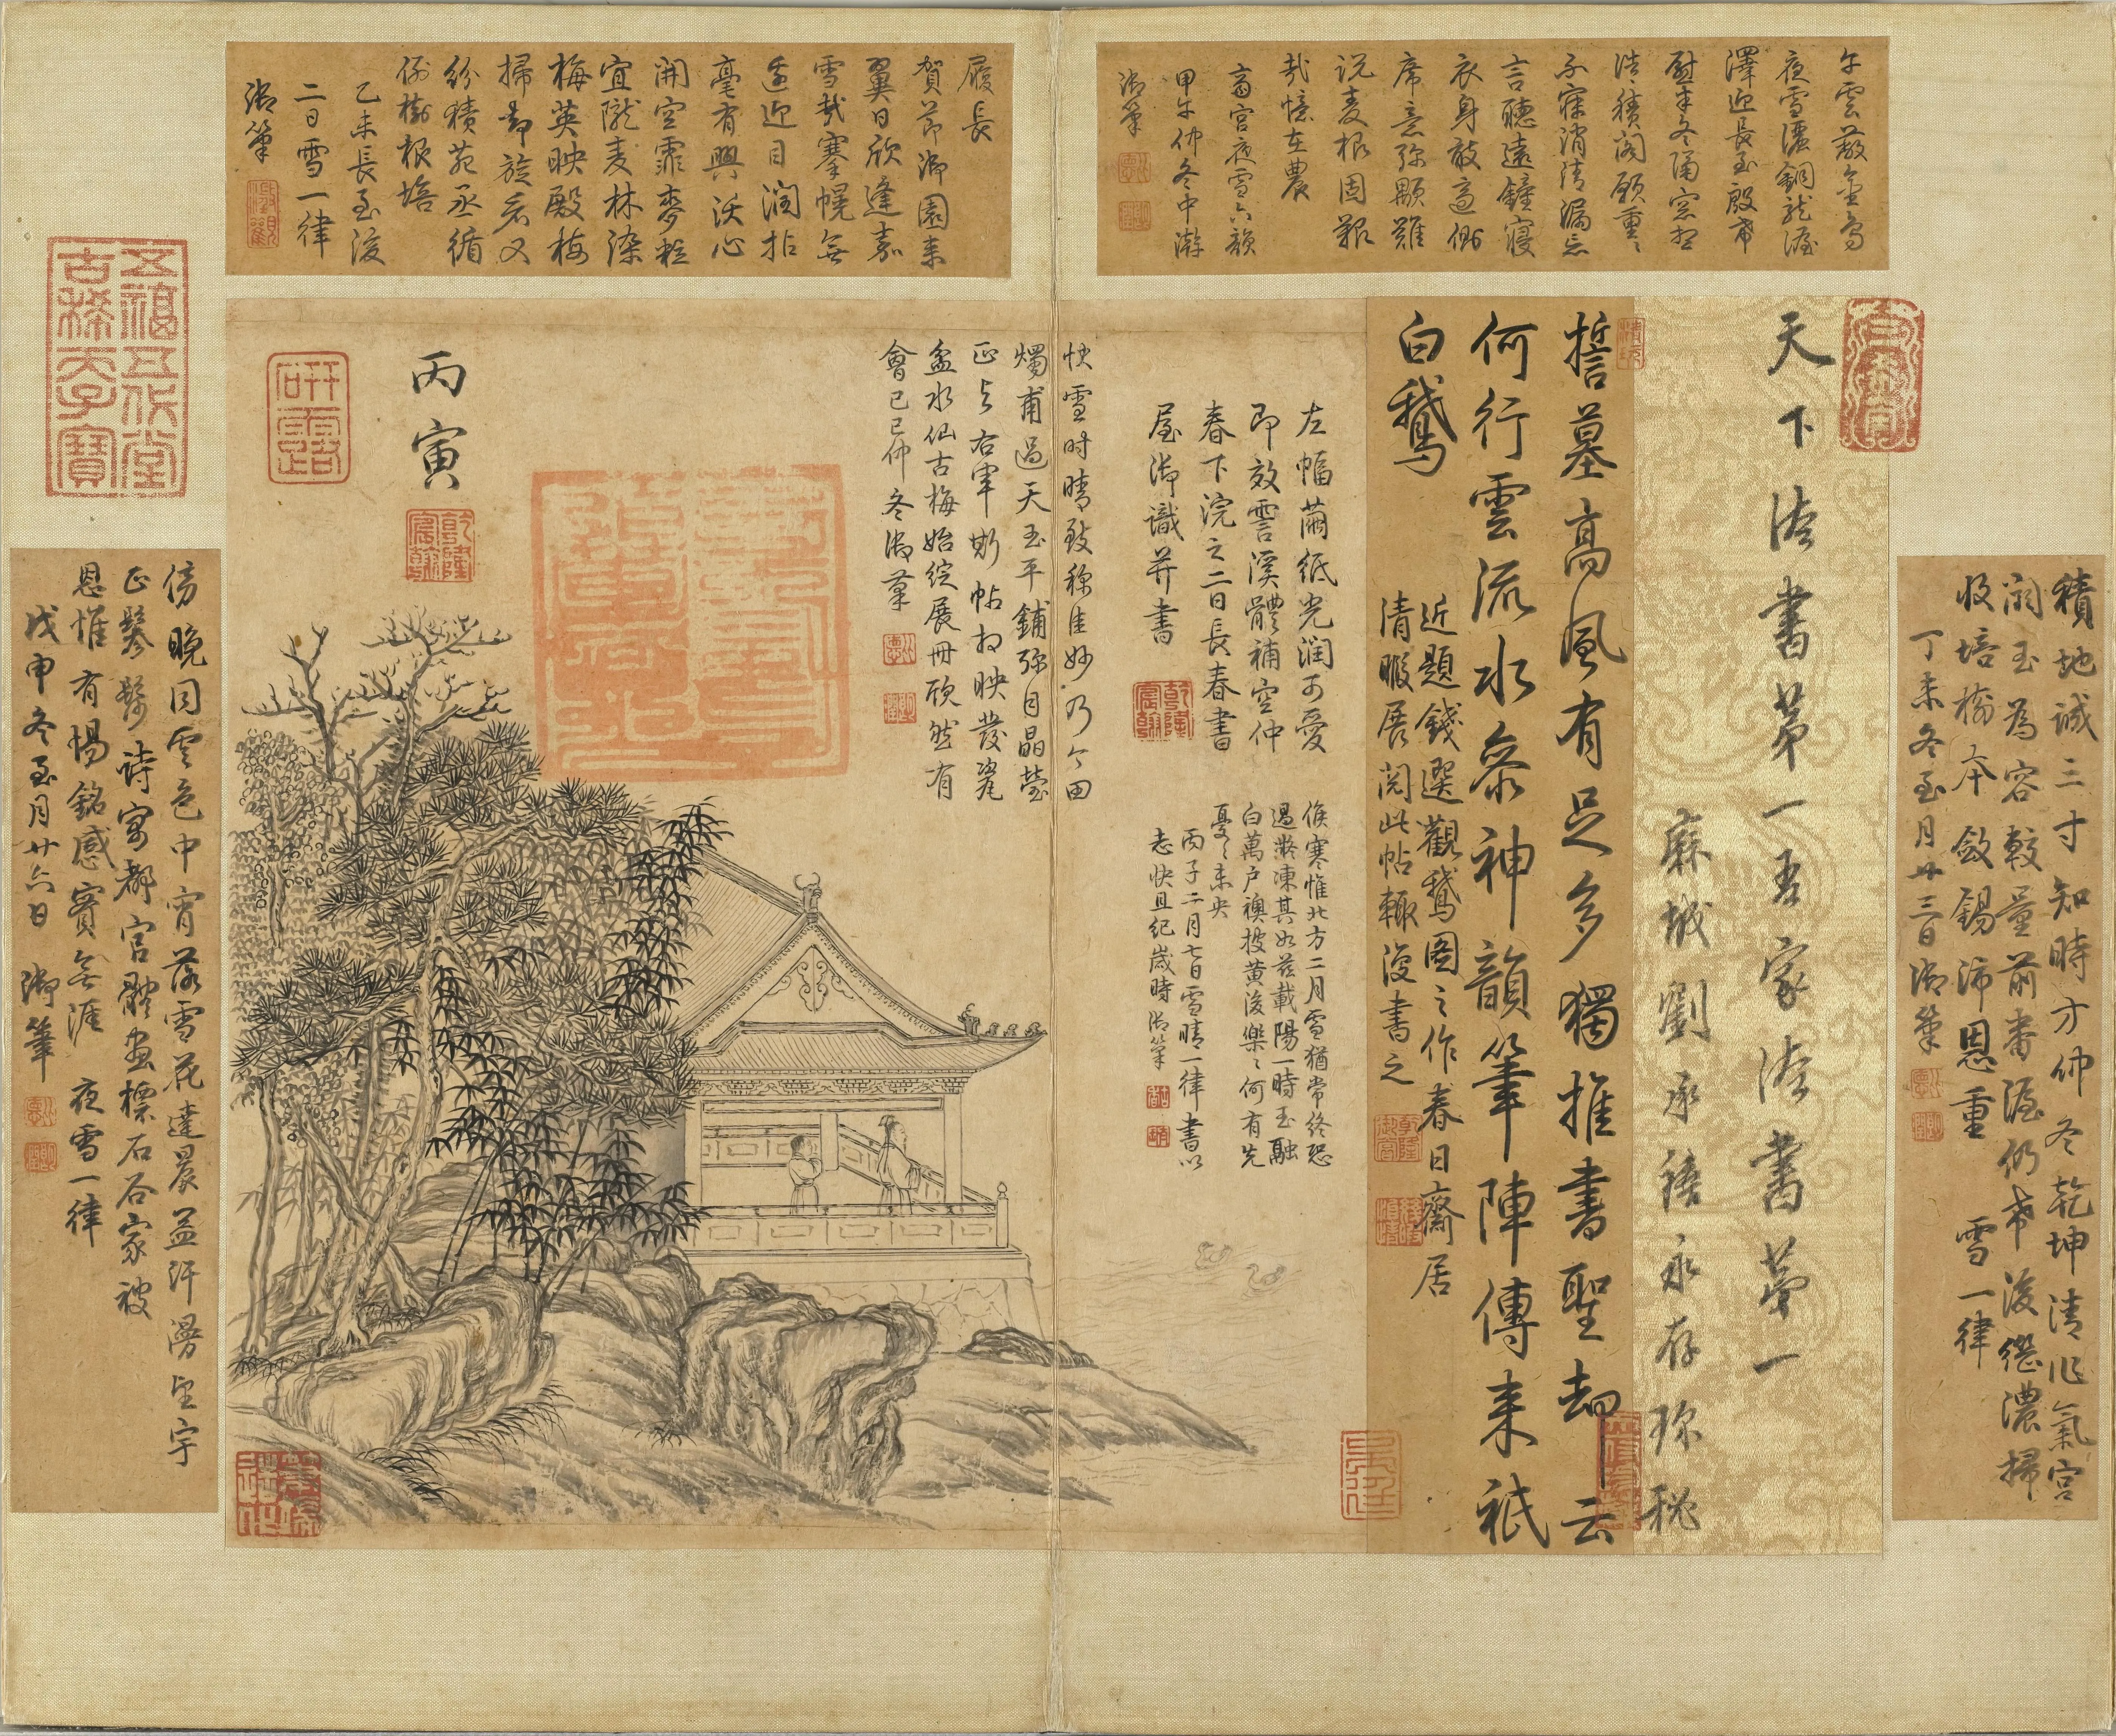 天下法書第一吾家法書第一
麻城劉承禧永存珍秘
誓墓高風有足多獨推書聖却云
何行雲流水參神韻筆陣傳來祇
白鵝
近題錢選觀鵝圖之作春日齋居
清暇展閱此帖輒復書之
左幅繭紙光潤可愛
即效雲溪體補空仲
春下浣之二日長春書
屋御識并書
候寒惟北方二月雪猶常終恐
過淞凍其如茲載陽一時玉融
白萬戶襖披黃後樂樂何有先
憂憂未央
丙子二月七日雪晴一律書以
志快且紀歲時御筆
快雪時晴致稱佳妙乃今田
燭甫過天玉平鋪彌目晶瑩
正與右軍斯帖相映發瓷
盆水仙古梅始綻展冊欣然有
會己巳仲冬御筆
丙寅
研露
乾隆宸翰
五福五代堂
古稀天子寶
履長
賀節御園來
翼日欣逢嘉
雪哉搴幌無
遙迎目潤拈
毫有興沃心
開空霏麥粒
宜隴麦林染
梅英映殿梅
掃却旋看又
紛積苑丞循
例樹根培
乙未長至後
二日雪一律
御筆
夜雪濃銅龍渥
澤迎長至殷希
慰本冬隔窓相
浩浩積閣願重重
不寐消清漏忘
言聽遠鐘寢
衣身敢適側
席意彌顒難
説麦根固艱
哉憶在農
齋宮夜雪六韻
甲午仲冬中澣
御筆
積地誠三寸知時方仲冬乾坤清作氣宮
闕玉為容較量前番渥仍希後繼濃掃
收培檜本斂錫沛恩重 雪一律
丁未冬至月廿三日御筆
傍晚同雲色中宵落雪花達晨益汗漫望宇
正鬖髿詩寓都官體畫標石谷家被
恩惟有惕銘感實無涯 夜雪一律
戊申冬至月廿六日 御筆